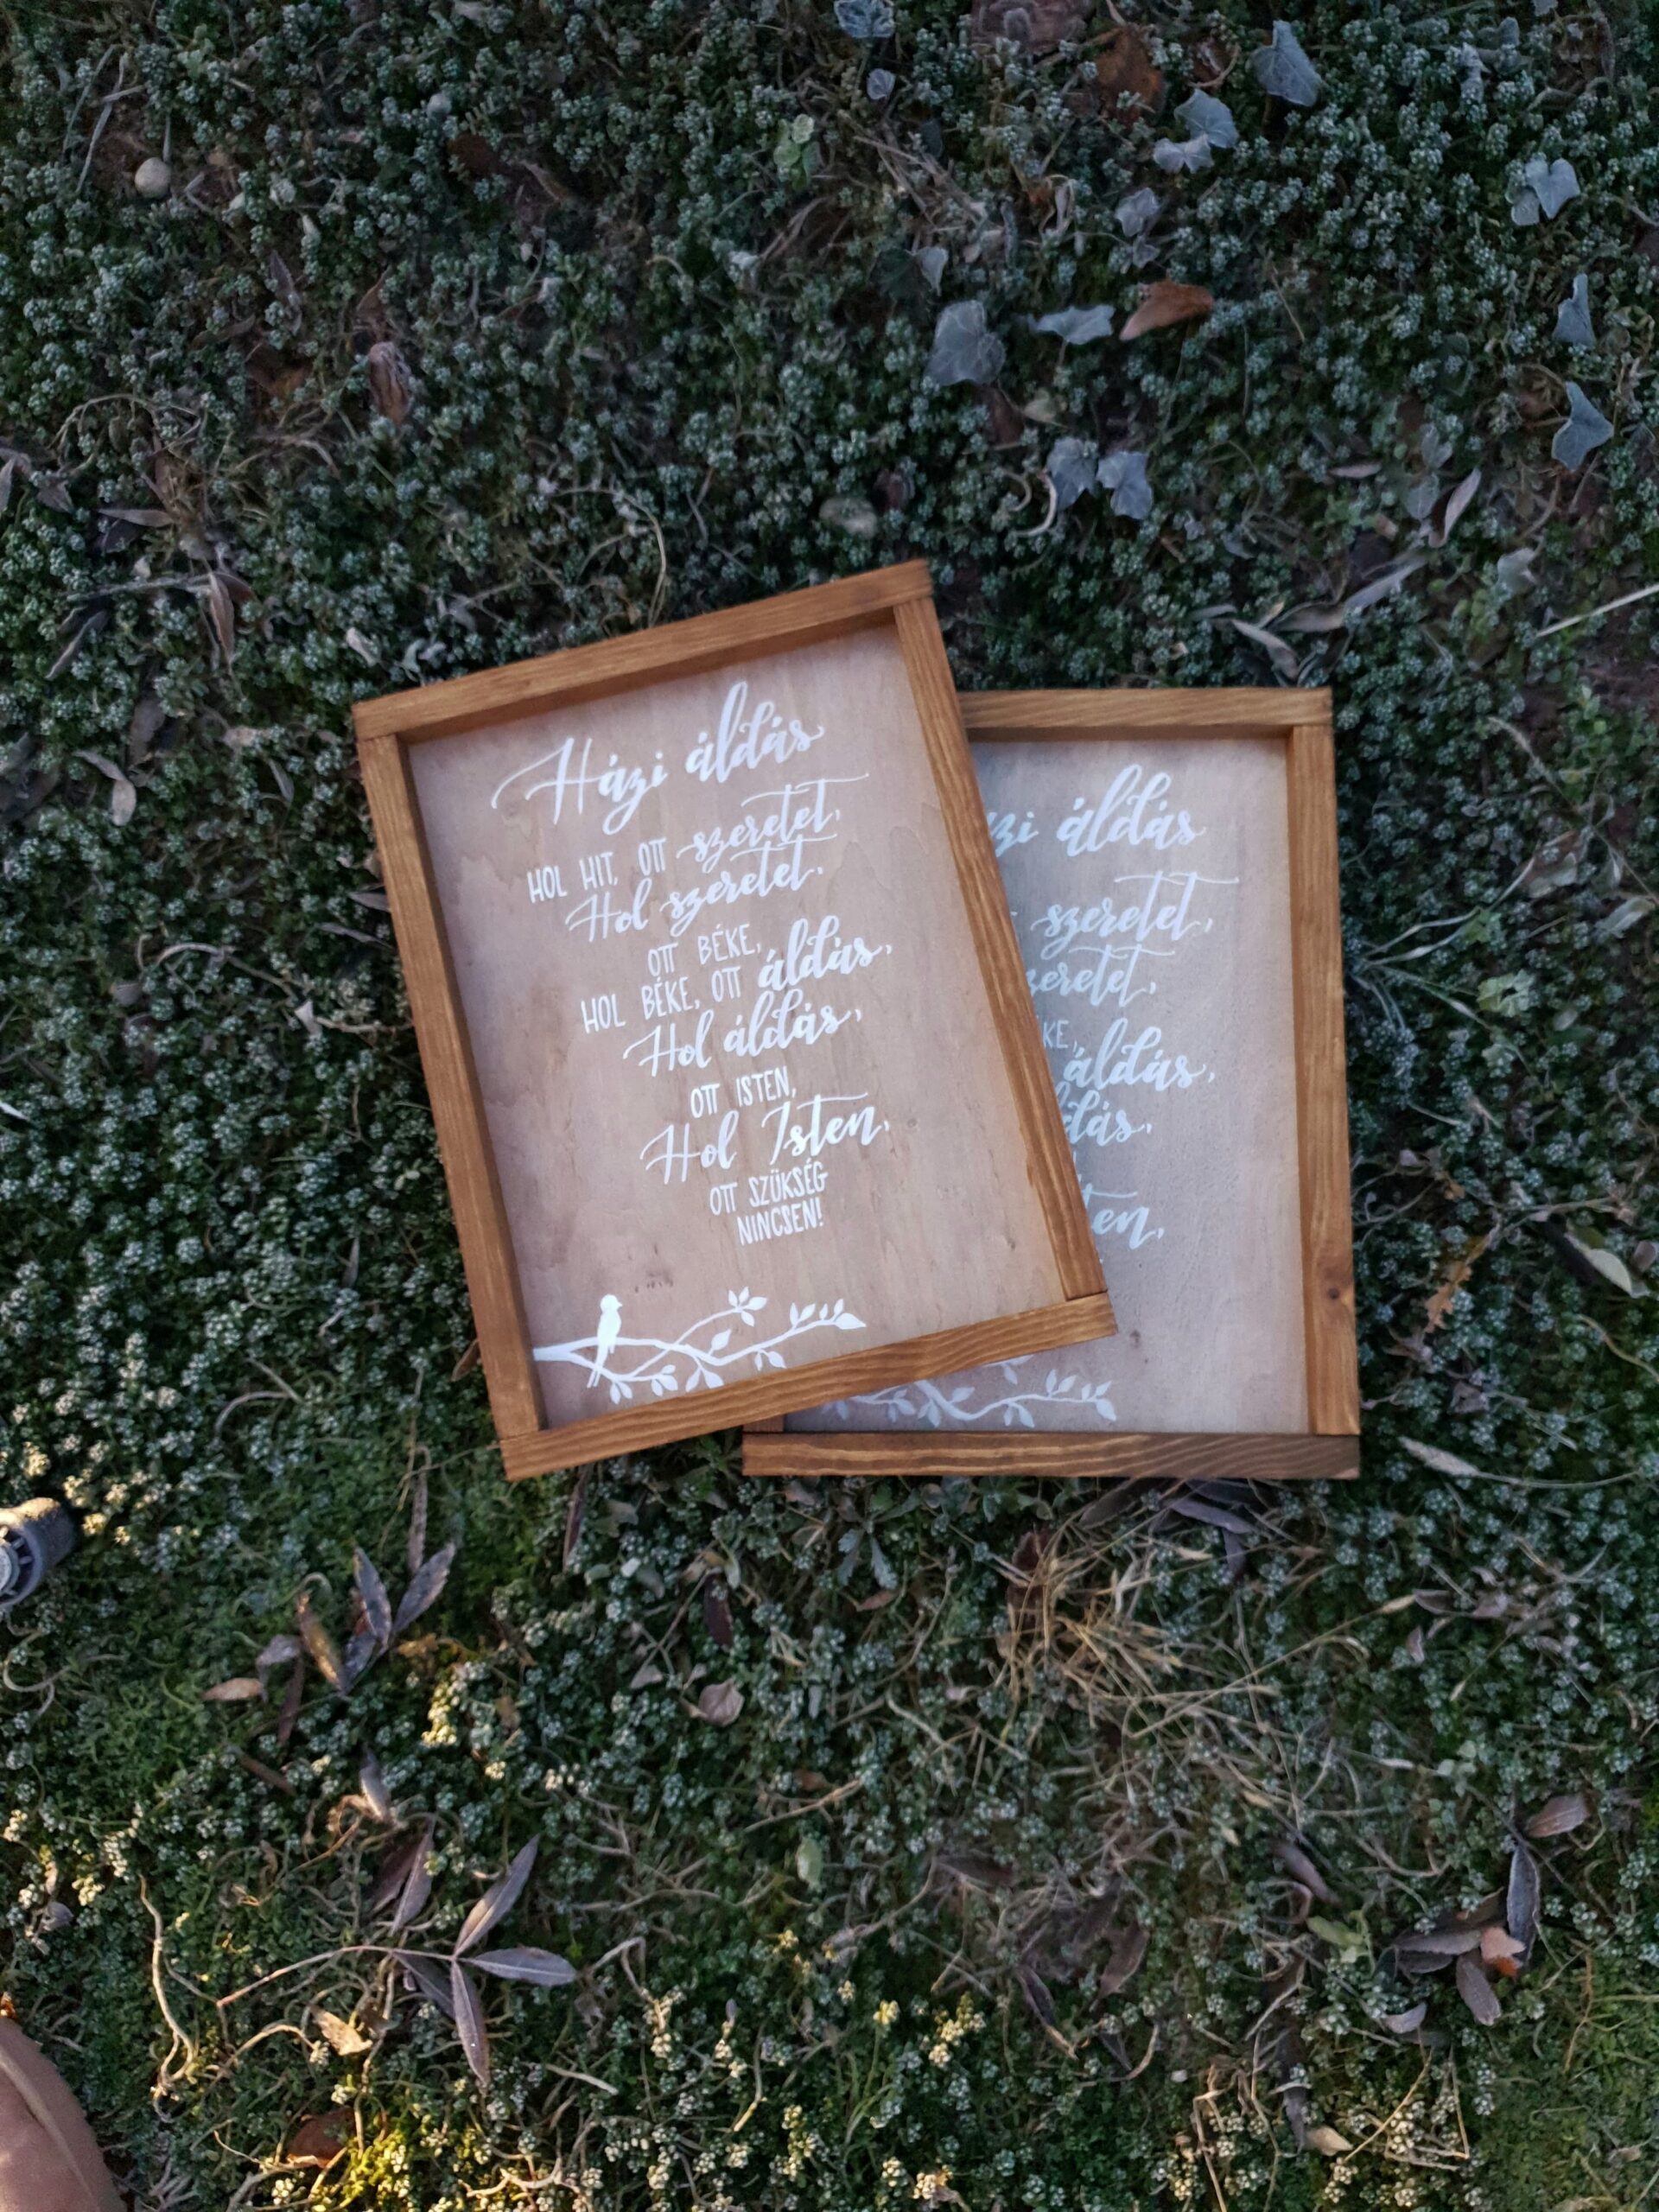 Házi áldás
HOL HIT, OTT szeretet,
Hol szeretet,
OTT BÉKE,
HOL BÉKE, OTT áldás,
Hol áldás,
OTT ISTEN,
Hol Isten,
OTT SZÜKSÉG
NINCSEN!
zi áldás
szeretet,
zeretet,
KE,
áldás,
ldás,
ten,